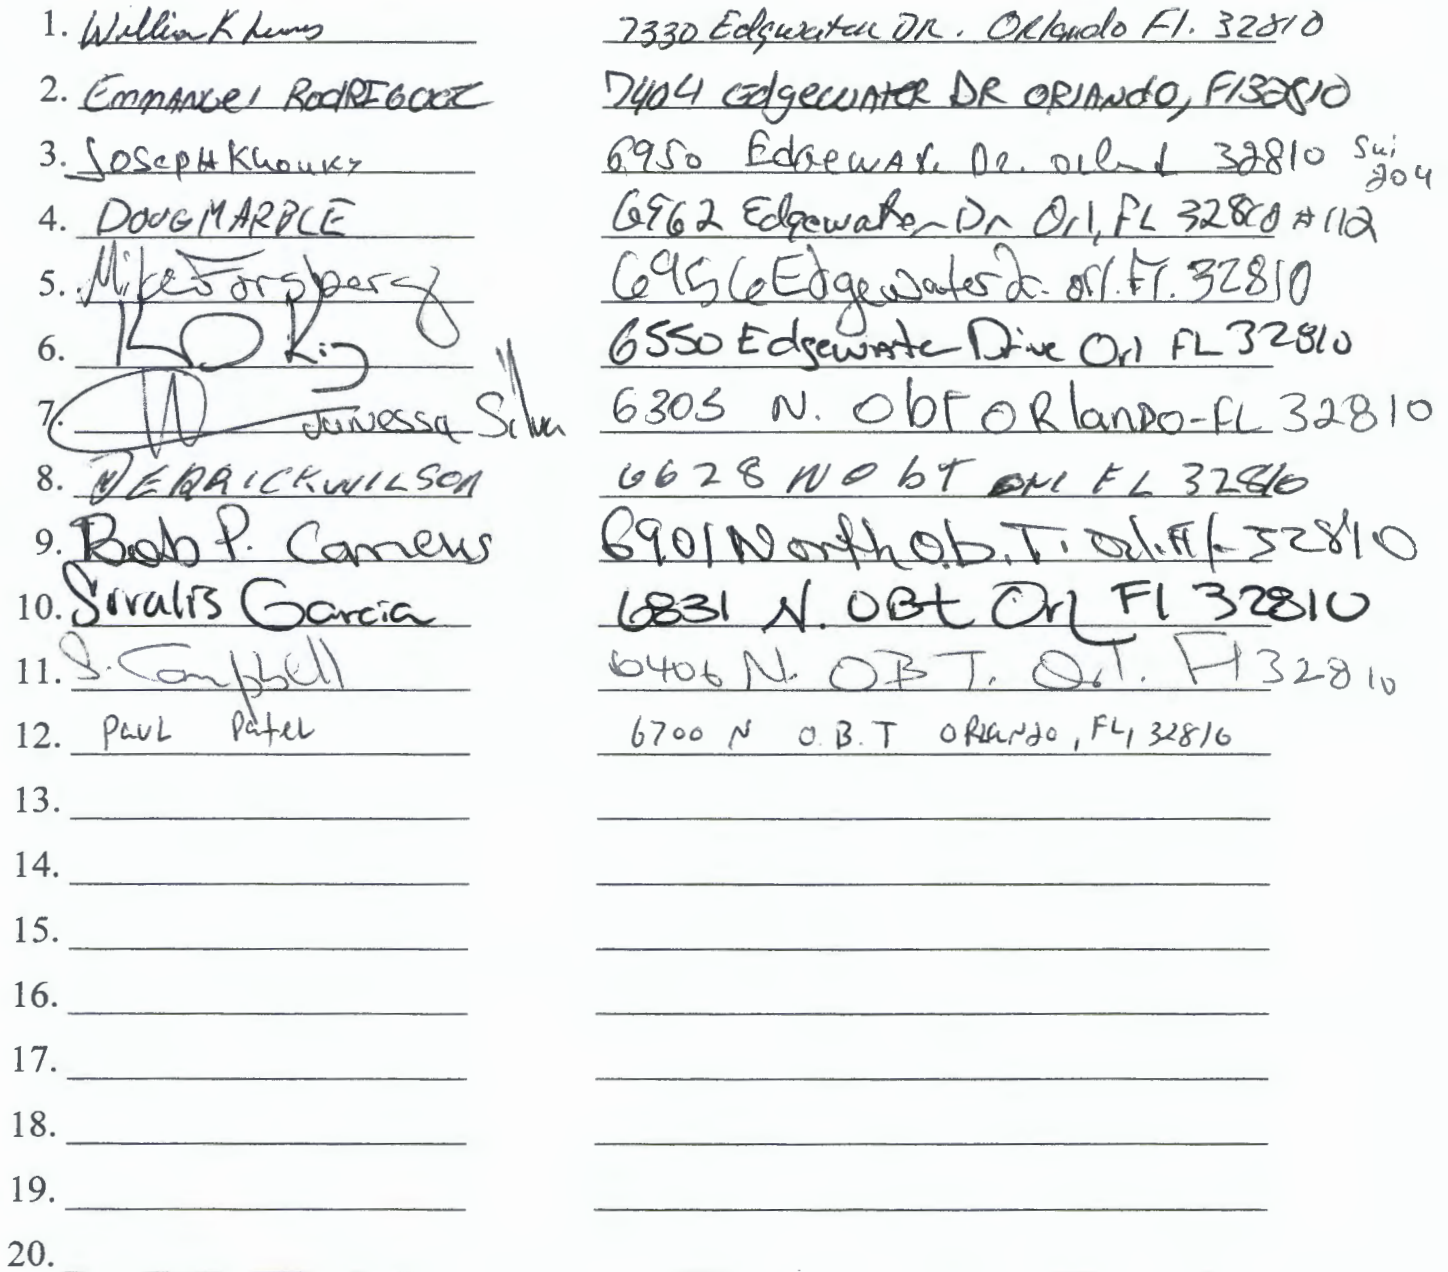 1. William K 7330 Edgewater DR. Orlando Fl. 32810
2. Emmanuel RODRIGUEZ 7404 Edgewater DR ORlANdO, Fl 32810
3. Joseph Khoury 6950 Edgewat. Dr. 32810 Sui 204
4. DOUG MARBLE 6962 Edgewater Dr Orl, FL 32810 #112
5. Mike Forsberg 6956 Edgewater Dr. orl. Fl. 32810
6. King 6550 Edgewater Drive Orl FL 32810
7. Janessa Silva 6303 N. ObT ORlanDO-FL 32810
8. DERRICK WILSON 6628 N O bT ORl FL 32810
9. Bob P. 6901 North O.b.T. Orl. Fl. 32810
10. Sivalis Garcia 6831 N. OBt Orl Fl 32810
11. S. Campbell 6406 N. OBT. Orl. Fl 32810
12. PauL PateL 6700 N O.B.T ORLando, FL, 32810
13.
14.
15.
16.
17.
18.
19.
20.